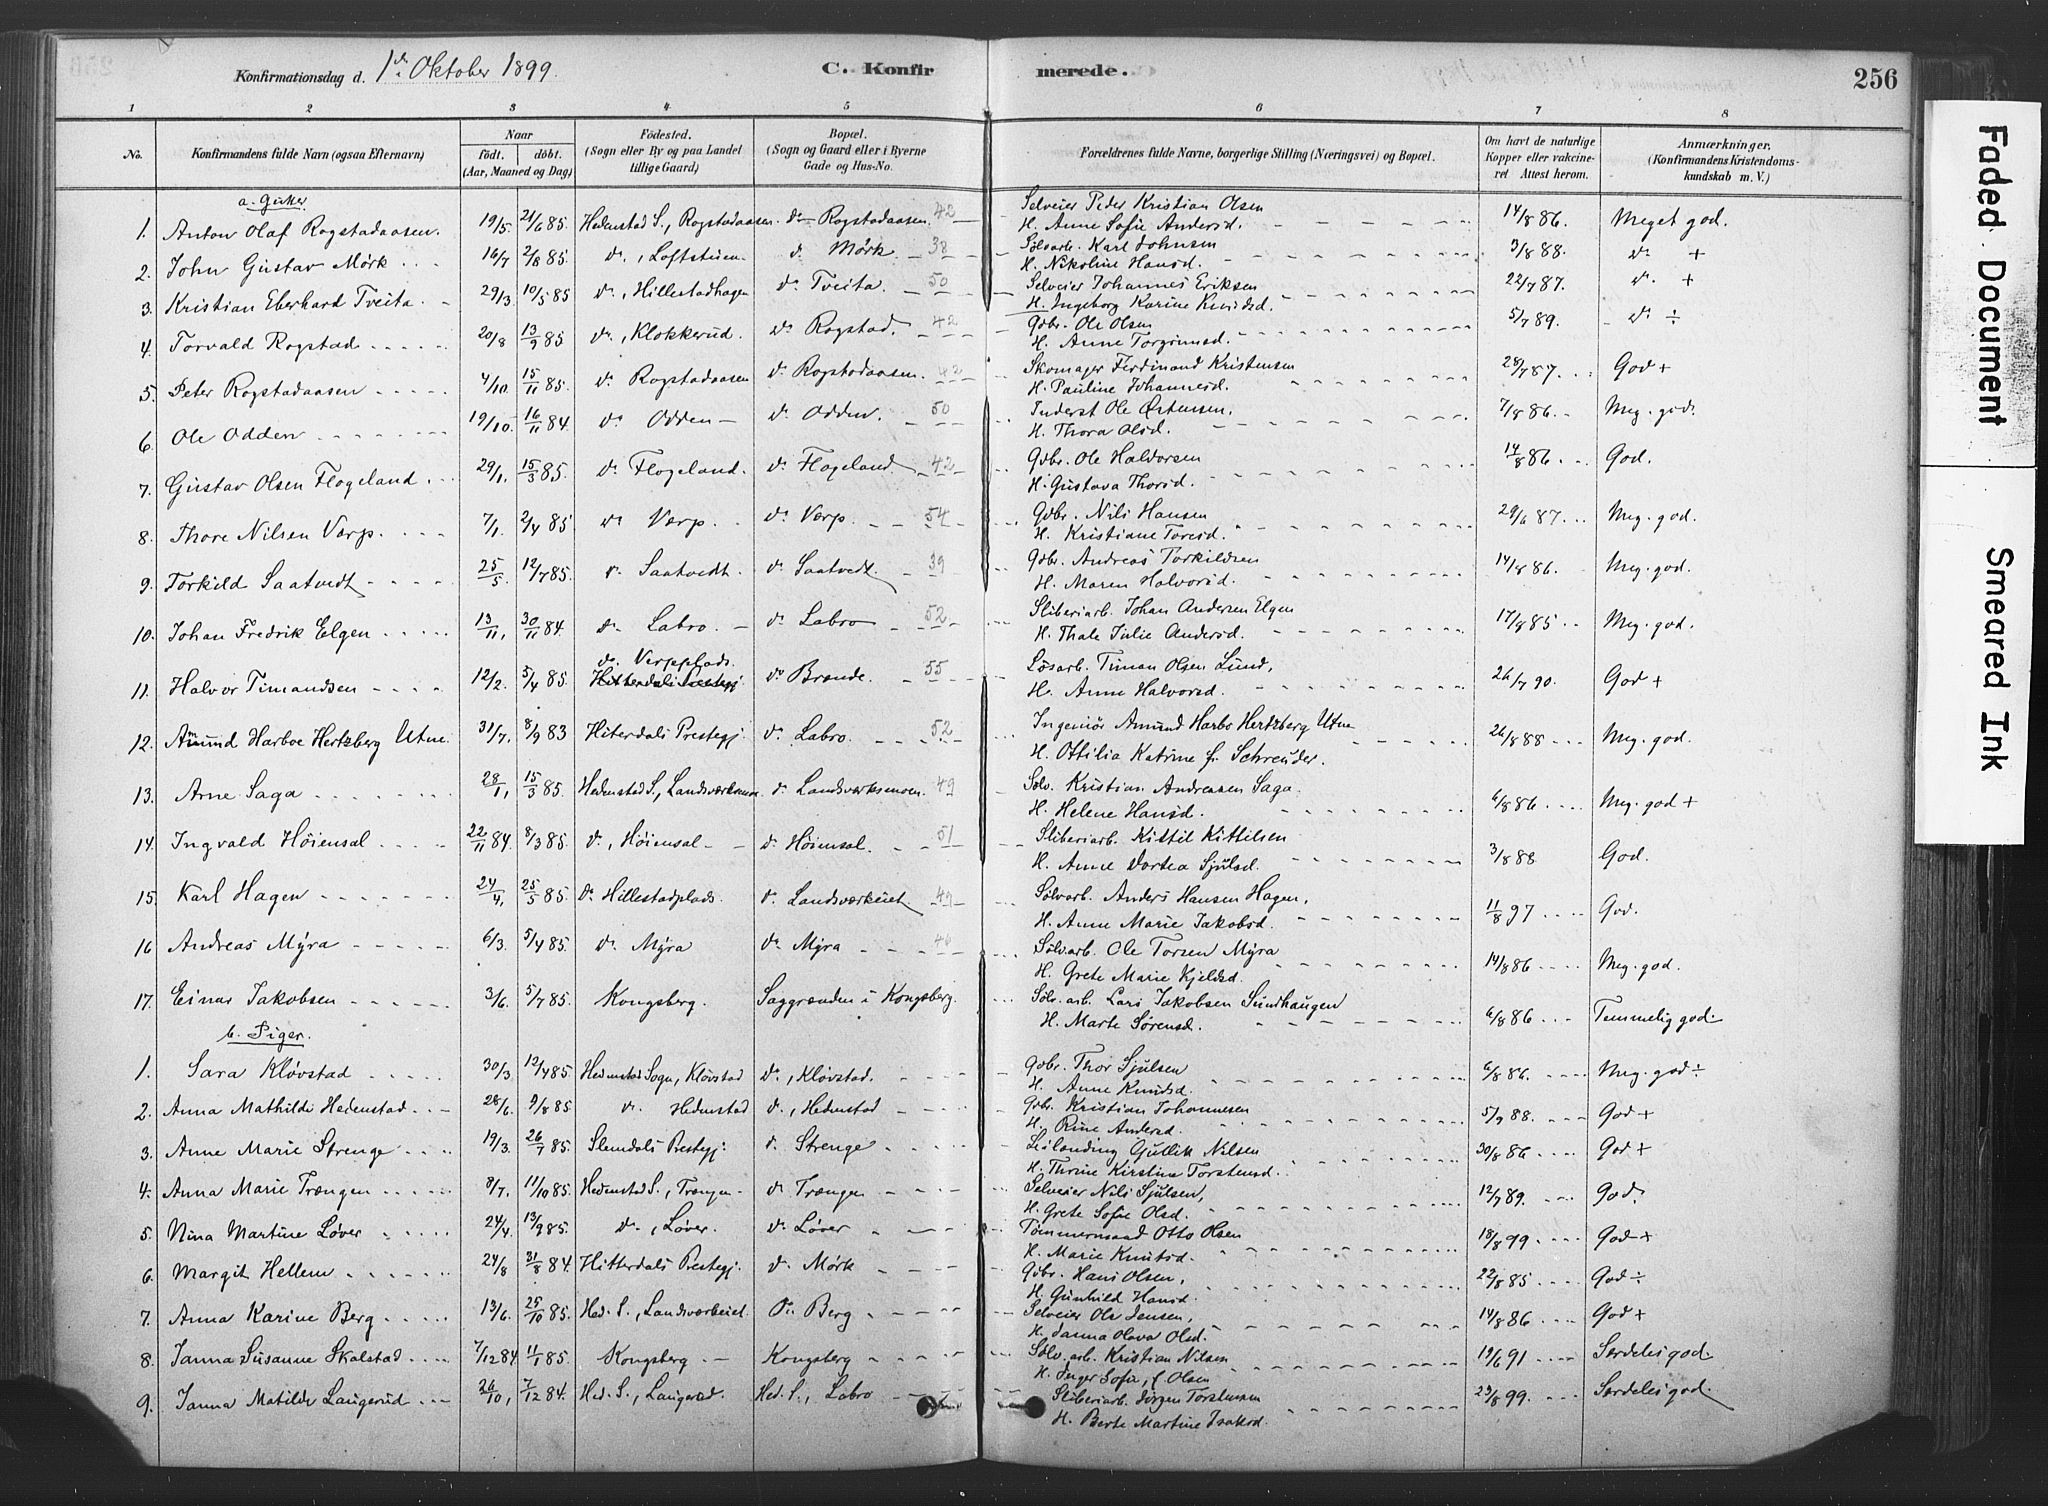 Konfirmationsdag d. 1ste Oktober 1899. C. Konfirmerede. 256
1 2 3 4 5 6 7 8
No. Konfirmandens fulde Navn (ogsaa Efternavn) Naar født. døbt. (Aar, Maaned og Dag) Fødested. (Sogn eller By og paa Landet tillige Gaard) Bopæl. (Sogn og Gaard eller i Byerne Gade og Hus-No. Forældrenes fulde Navne, borgerlige Stilling (Næringsvei) og Bopæl. Om havt de naturlige Kopper eller vakcineret Attest herom. Anmærkninger. (Konfirmandens Kristendomskundskab m. V.)
a. Gutter
1. Anton Olaf Rogstadaasen. 19/5 21/6 85. Hedenstad S., Rogstadaasen. do Rogstadaasen 42 Selveier Peder Kristian Olsen H. Anne Sofie Andersd. 14/8 86. Meget god.
2. John Gustav Mørk 16/7 2/8 85. do, Loftstuen do Mørk 38 Sølvarb. Karl Johnsen H. Nikoline Hansd. 3/8 88. do +
3. Kristian Eberhard Tveita. 29/3. 10/5 85 do, Hillestadhagen do Tveita. 50 Selveier Johannes Eriksen H. Ingeborg Karine Knudsd. 22/7 87. do +
4. Torvald Rogstad 20/8 13/9 85 do, Klokkerud. do Rogstad. 42 Gdbr. Ole Olsen H. Anne Torgrimsd. 5/7 89. do ÷
5. Peter Rogstadaasen 4/10. 15/11 85. do Rogstadaasen do Rogstadaasen. 42 Skomager Ferdinand Kristensen H. Pauline Johannesd. 28/7 87. God +
6. Ole Odden 19/10. 16/11 84. do Odden do Odden. 50 Inderst Ole Østensen. H. Thora Olsd. 7/8 86. Meg. god.
7. Gustav Olsen Flogeland 29/1. 15/3 85. do Flogeland. do Flogeland 42 Gdbr. Ole Halvorsen H. Gustava Thorsd. 14/8 86. God.
8. Thore Nilsen Værp. 7/1. 2/4 85. do Værp. do Værp. 54 Gdbr. Nils Hansen H. Kristiane Toresd. 29/6 87. Meg. god.
9. Torkild Saatvedt 25/5. 12/7 85. do Saatvedt. do Saatvedt. 39 Gdbr. Andreas Torkildsen H. Maren Halvorsd. 14/8 86. Meg. god.
10. Johan Fredrik Elgen 13/11. 30/11 84. do Labro. do Labro 52 Sliberiarb. Johan Andersen Elgen H. Thale Julie Andersd. 17/8 85 Meg. god.
11. Halvor Timandsen 12/2. 5/4 85. do Verpplads. Hitterdals Prestegj. do Brænde. 55 Løsarb. Timan Olsen Lund, H. Anne Halvorsd. 26/7 90. God +
12. Amund Harboe Hertzberg Utne. 31/7. 8/9 83 Hiterdals Prestegj. do Labro. 52 Ingeniør Amund Harbo Hertzberg Utne H. Ottilia Katrine f. Schreuder. 26/8 88 Meg. god.
13. Arne Saga 28/1. 15/3 85. Hedenstad S., Landsværksmoen do Landsværksmoen. 49 Sølv. Kristian Andreasen Saga. H. Helene Hansd. 6/8 86. Meg. god +
14. Ingvald Høiensal 22/11 84. 8/3 85. do, Høiensal do Høiensal. 51 Sliberiarb. Kittil Kittilsen H. Anne Dortea Sjulsd. 3/8 88 God.
15. Karl Hagen 24/4. 25/5 85. do Hillestadplads. do Landsværkeiet 49 Sølvarb. Anders Hansen Hagen, H. Anne Marie Jakobsd. 11/8 97 God.
16 Andreas Myra 6/3. 5/4 85. do Myra do Myra 46 Sølvarb. Ole Torsen Myra H. Grete Marie Kjeldsd. 14/8 86 Meg. god.
17. Einar Jakobsen 3/6. 5/7 85. Kongsberg. Saggrenden i Kongsberg. Sølv. arb. Lars Jakobsen Sundhaugen H. Marte Sørensd. 6/8 86 Temmelig god.
b. Piger.
1. Sara Kløvstad 30/3. 12/4 85. Hedenstad Sogn, Kløvstad do, Kløvstad. Gdbr. Thor Sjulsen H. Anne Knudsd. 6/8 86. Meg. god ÷
2. Anna Mathilde Hedenstad 28/6. 9/8 85. do Hedenstad do, Hedenstad Gdbr. Kristian Johannesen H. Rine Andersd. 5/9 88. God +
3. Anne Marie Strenge 19/3. 26/7 85. Slemdals Prestegj. do Strenge Leilænding Gullik Nilsen H. Thrine Kirstine Torstensd. 30/8 86 God +
4. Anna Marie Trængen 8/7. 11/10 85. Hedenstad S., Trængen do Trængen Selveier Nils Sjulsen, H. Grete Sofie Olsd. 12/7 89. God.
5. Nina Martine Løver 24/4. 13/9 85. do, Løver. do Løver Tømmermand Otto Olsen H. Marie Knutsd. 18/8 99 God +
6. Margit Hellem 24/8 31/8 84. Hitterdals Prestegj. do Mørk Gdbr. Hans Olsen, H. Gunhild Hansd. 22/8 85 God ÷
7. Anna Karine Berg 13/6. 25/10 85. Hed. S., Landsværkeiet. do Berg Selveier Ole Jensen, H. Janna Olava Olsd. 14/8 86 God +
8. Janna Susanne Skalstad 7/12 84. 11/1 85. Kongsberg Kongsberg Sølv. arb. Kristian Nilsen H. Inger Sofie, f. Olsen 19/6 91 Særdeles god.
9. Janna Matilde Laugerud 26/10, 7/12 84. Hed. S., Laugerud. Hed. S., Labro Sliberiarb. Jørgen Torstensen H. Berte Martine Isaksd. 23/8 99. Særdeles god.
Faded Document
Smeared Ink